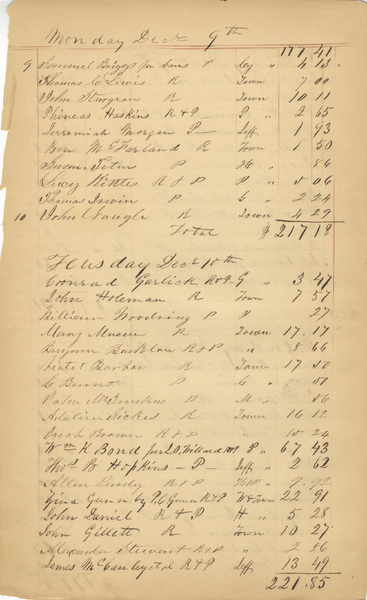 Monday Decr 9th
177 41
9 Samuel Briggs for Sons P Cy " 4 13
Thomas C Lewis R Town 7 00
John Sturgeon R Town 10 11
Phineas Haskins R & P P " 2 65
Jeremiah Morgan P Jeff " 1 93
Ben McFarland R Town 1 50
Peter P H " 86
Lucy R & P P " 5 06
Thomas Irwin P G " 2 24
10 John Slaugh R Town 4 29
Total $ 217 18
Tuesday Decr 10th
Coonrad Garlick R & P G " 3 47
John Holeman R Town 7 57
William Woodring P P 27
Mary R Town 17.17
Bucklau R & P " 8 66
Barbar R Town 17 50
G Burnt P G "
John P M " 86
Adaline Sickes R Town 16 12
Jacob Brown R & P " 24
Wm K Bond for S. D. Willard P " 67 43
Thos B Hopkins - P - Jeff " 2 62
Allen R & P H&P " 9.92
Gunn by Gunn R & P W & Town 22 91
John Daniel R & P H " 5 28
John Gillett R Town 10 27
Alexander Stewart R & P " 2 86
James McCauley R & P Jeff 13 49
221.85